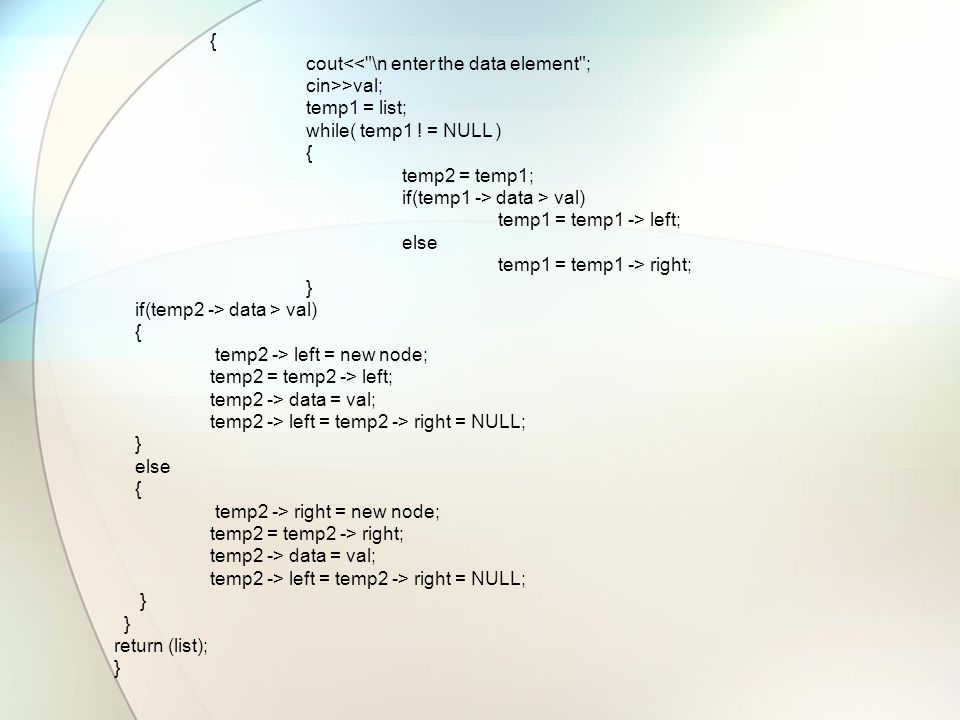 {
cout<<"\n enter the data element";
cin>>val;
temp1 = list;
while( temp1 ! = NULL )
{
temp2 = temp1;
if(temp1 -> data > val)
temp1 = temp1 -> left;
else
temp1 = temp1 -> right;
}
if(temp2 -> data > val)
{
temp2 -> left = new node;
temp2 = temp2 -> left;
temp2 -> data = val;
temp2 -> left = temp2 -> right = NULL;
}
else
{
temp2 -> right = new node;
temp2 = temp2 -> right;
temp2 -> data = val;
temp2 -> left = temp2 -> right = NULL;
}
}
return (list);
}